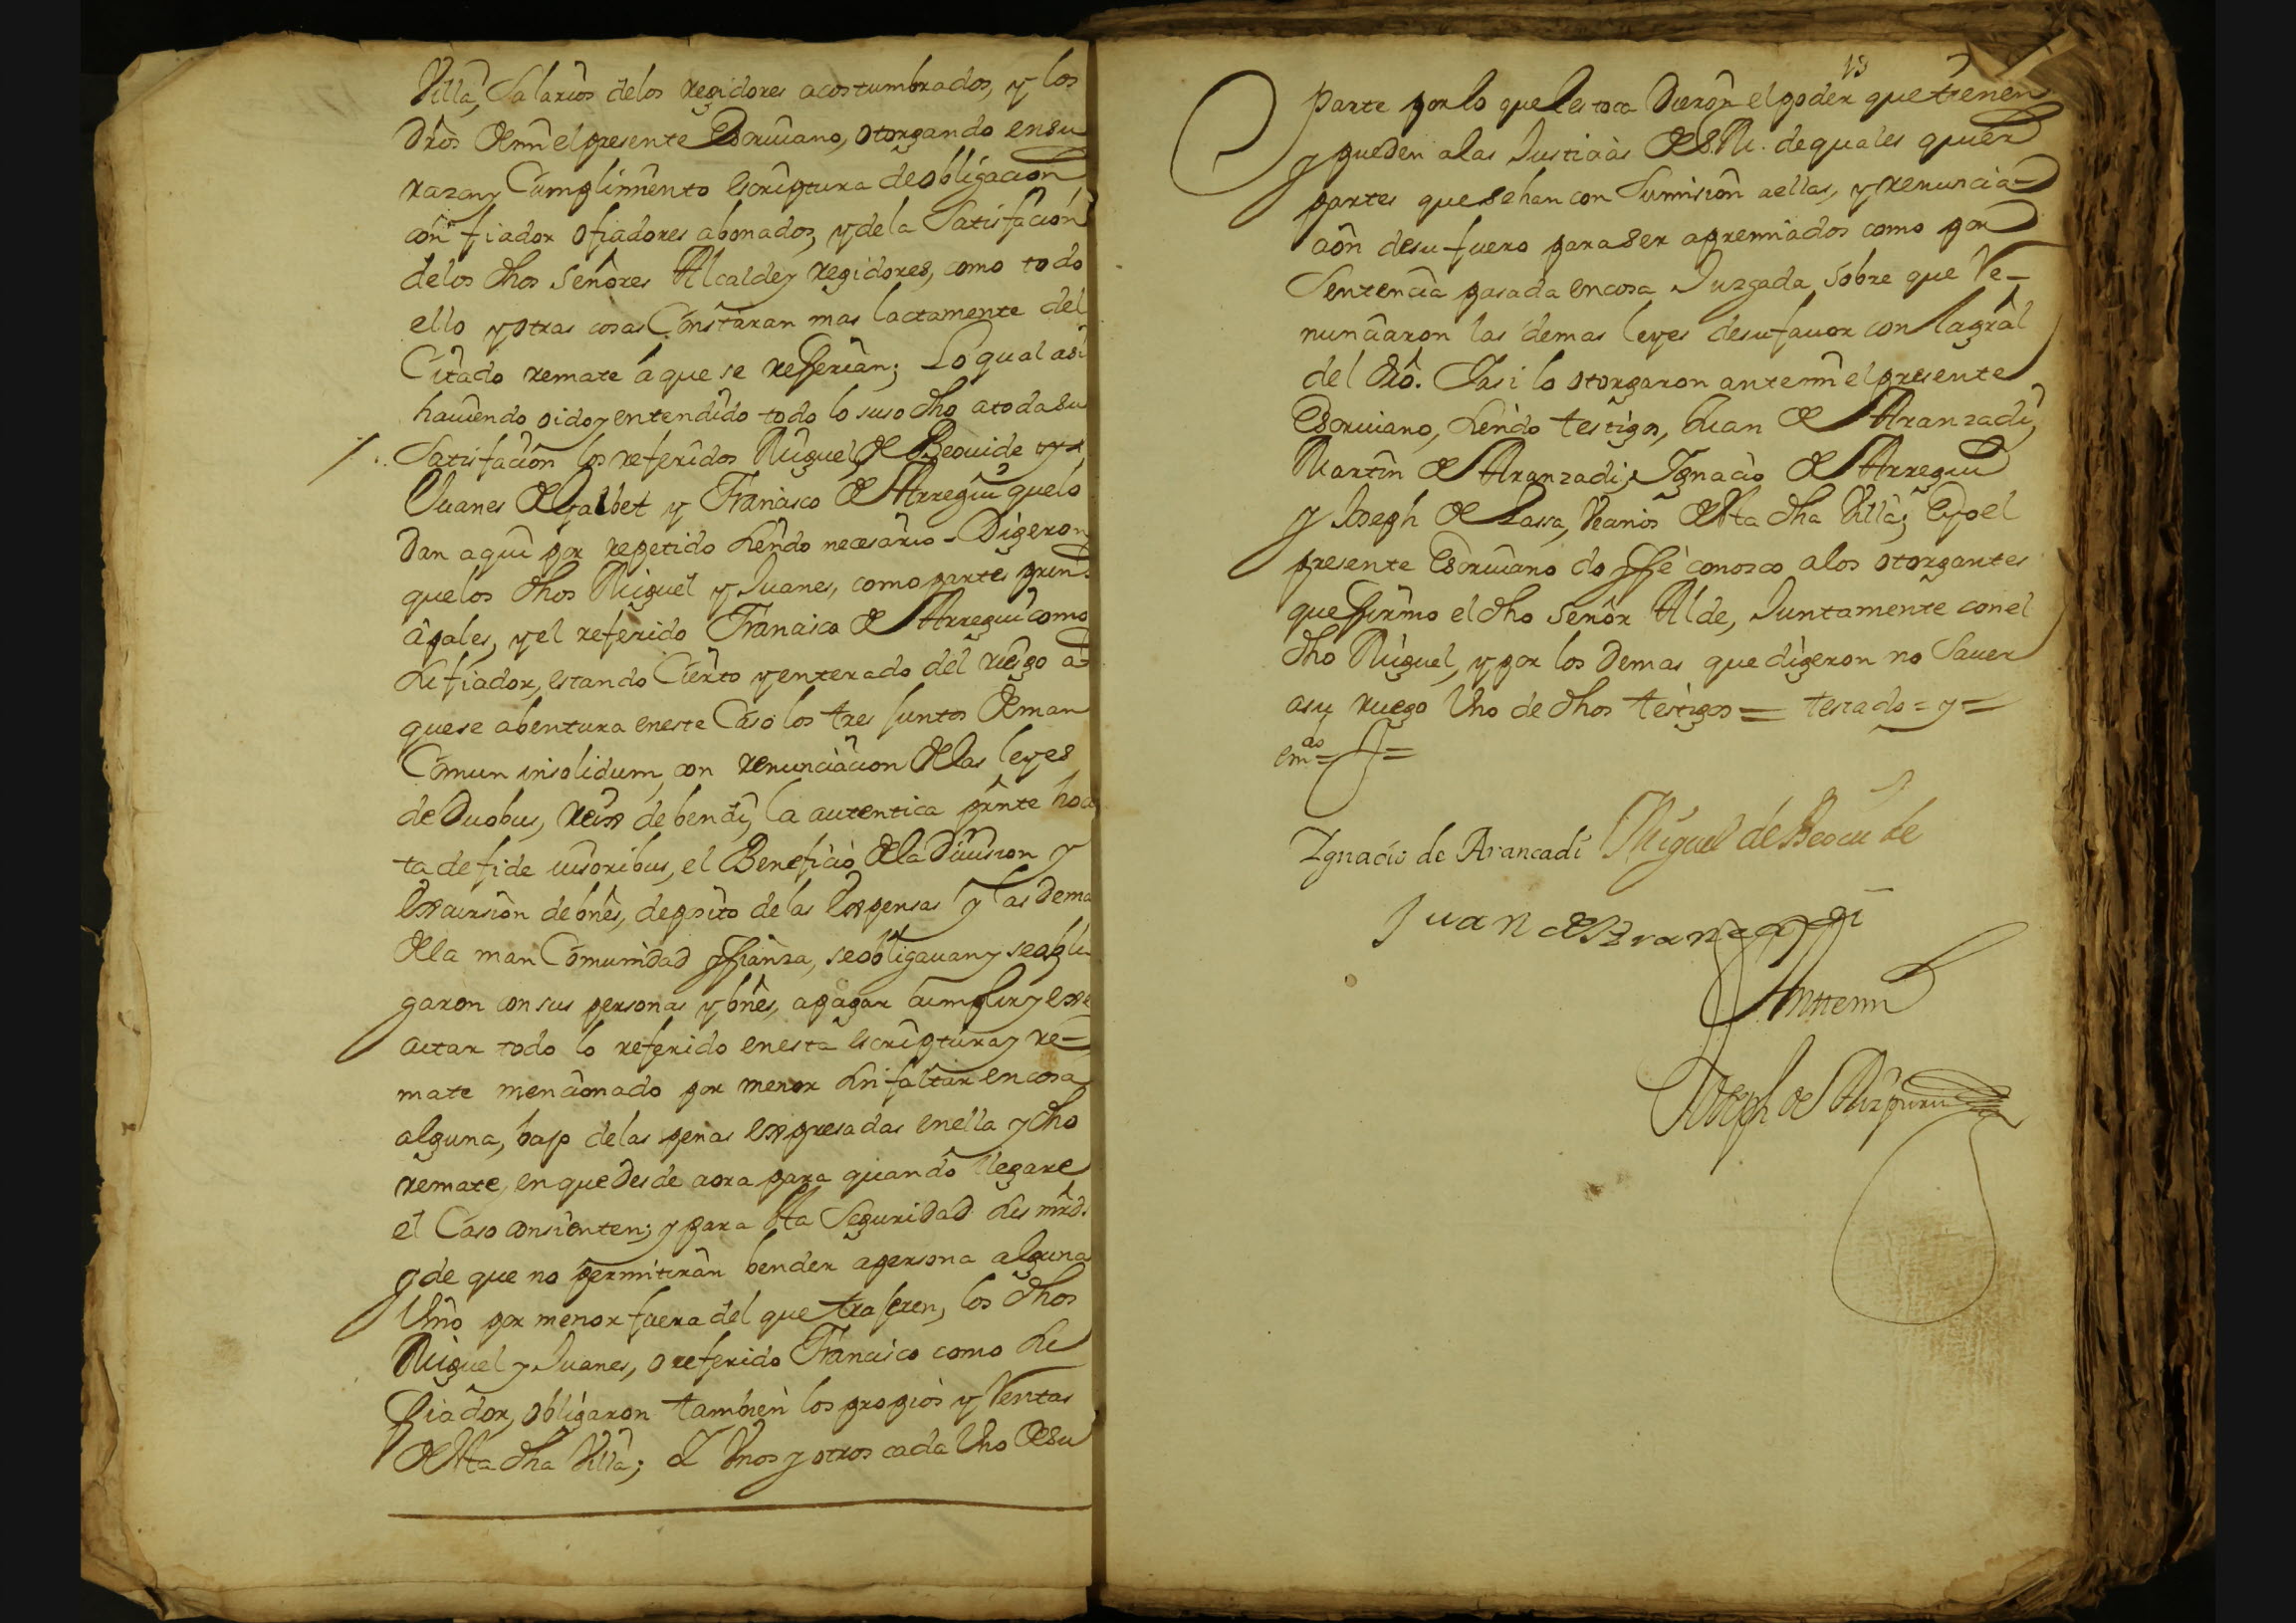 Villa, Salarios delos regidores acostumbrados, y los
dros de mi el presente Escriuano, otorgando en su
razon y Cumplimiento escriptura de obligacion
con fiador o fiadores abonados, y de la Satisfacion
delos dhos Señores Alcalde y regidores, como todo
ello y otras cosas Constaran mas lactamente del
Citado remate á que se refferian; Lo qual asi
hauiendo oido y entendido todo lo suso dho a toda su
Satisfacion los referidos Miguel de Beouide y
Juanes de Galbet y Francisco de Arregui que lo
dan aqui por repetido siendo necesario - Digeron
que los dhos Miguel y Juanes, como partes prin-
cipales, y el referido Francisco de Arregui como
su fiador, estando Cierto y enterado del riesgo a
que se abentura en este Caso los tres Juntos de man
Comun insolidum, con renunciacion de las leyes
de Duobus, reix de bendi, la autentica presnte hoc
ta de fide iusoribus, el Beneficio de la Diuision y
Excursion de bnes, deposito de las Expensas y las dema
de la man Comunidad y ffianza, se obligauan y se obli-
garon con sus personas y bnes, a pagar cumplir y exe
cutar todo lo referido en esta escriptura y re-
mate mencionado por menor sin faltar en cosa
alguna, bajo de las penas expresadas en ella y dho
remate, en que desde aora para quando llegare
el Caso consienten; y para sta Seguridad sus mrds.
y de que no permitiràn bender a persona alguna
Vino por menor fuera del que trajeren, los dhos
Miguel y Juanes, o referido Francisco como su
Fiador, obligaron tambien los propios y Rentas
de sta dha Villa; E Vnos y otros cada Vno de su
18
parte por lo que les toca Dieron el poder que tienen
y pueden a las Justicias de S.M. de quales quier
partes que se han con Sumision a ellas, y renuncia-
cion de su fuero para ser apremiados como por
Sentencia pasada en cosa Juzgada, sobre que Re-
nunciaron las demas leyes de su fauor con la gral
del dro. Y asi lo otorgaron ante mi el presente
Escriuano, siendo testigos, Juan de Aranzadi,
Martin de Aranzadi, Ignacio de Arregui
y Joseph de Lasa, Vecinos de sta dha Villa; E yo el
presente Escriuano doy ffè conosco a los otorgantes
que ffirmo el dho Señor Alde, Juntamente con el
dho Miguel, y por los demas que digeron no Sauer
a su ruego Vno de dhos testigos = testado = y =
emdo = J =
Ignacio de Arancadi Miguel de Beouide
Juan de Aranzadi
Ante mi
Joseph de Aizpuru